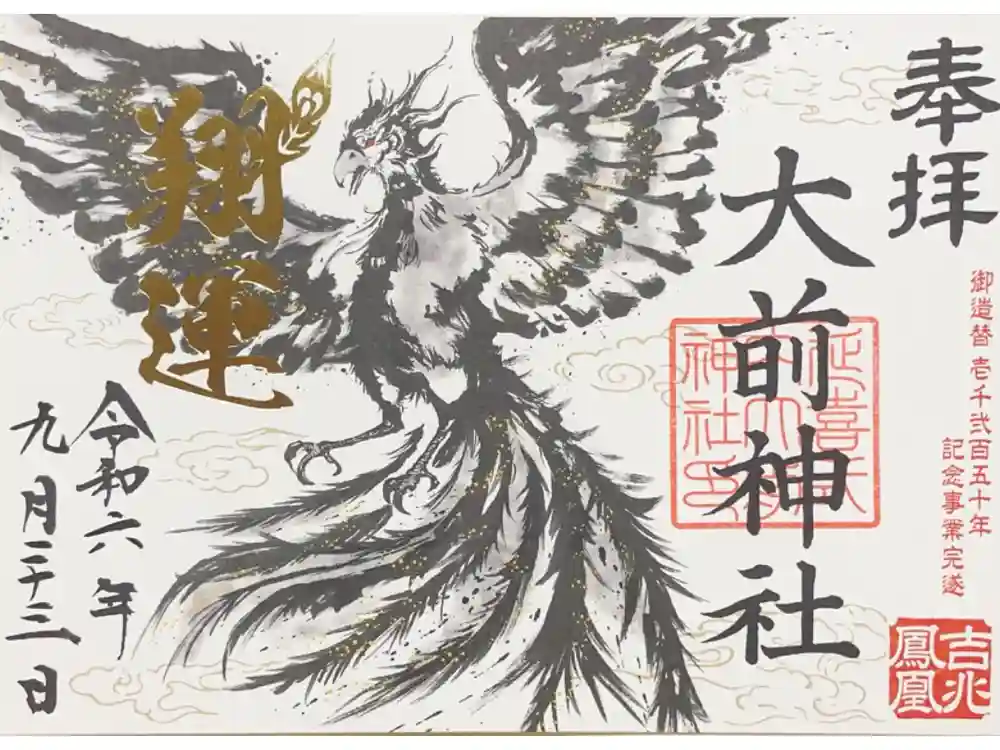 奉拝
御造替 壱千弐百五十年
記念事業完遂
吉兆
鳳凰
大前神社
延喜式
神社印
翔運
令和六年
九月二十三日